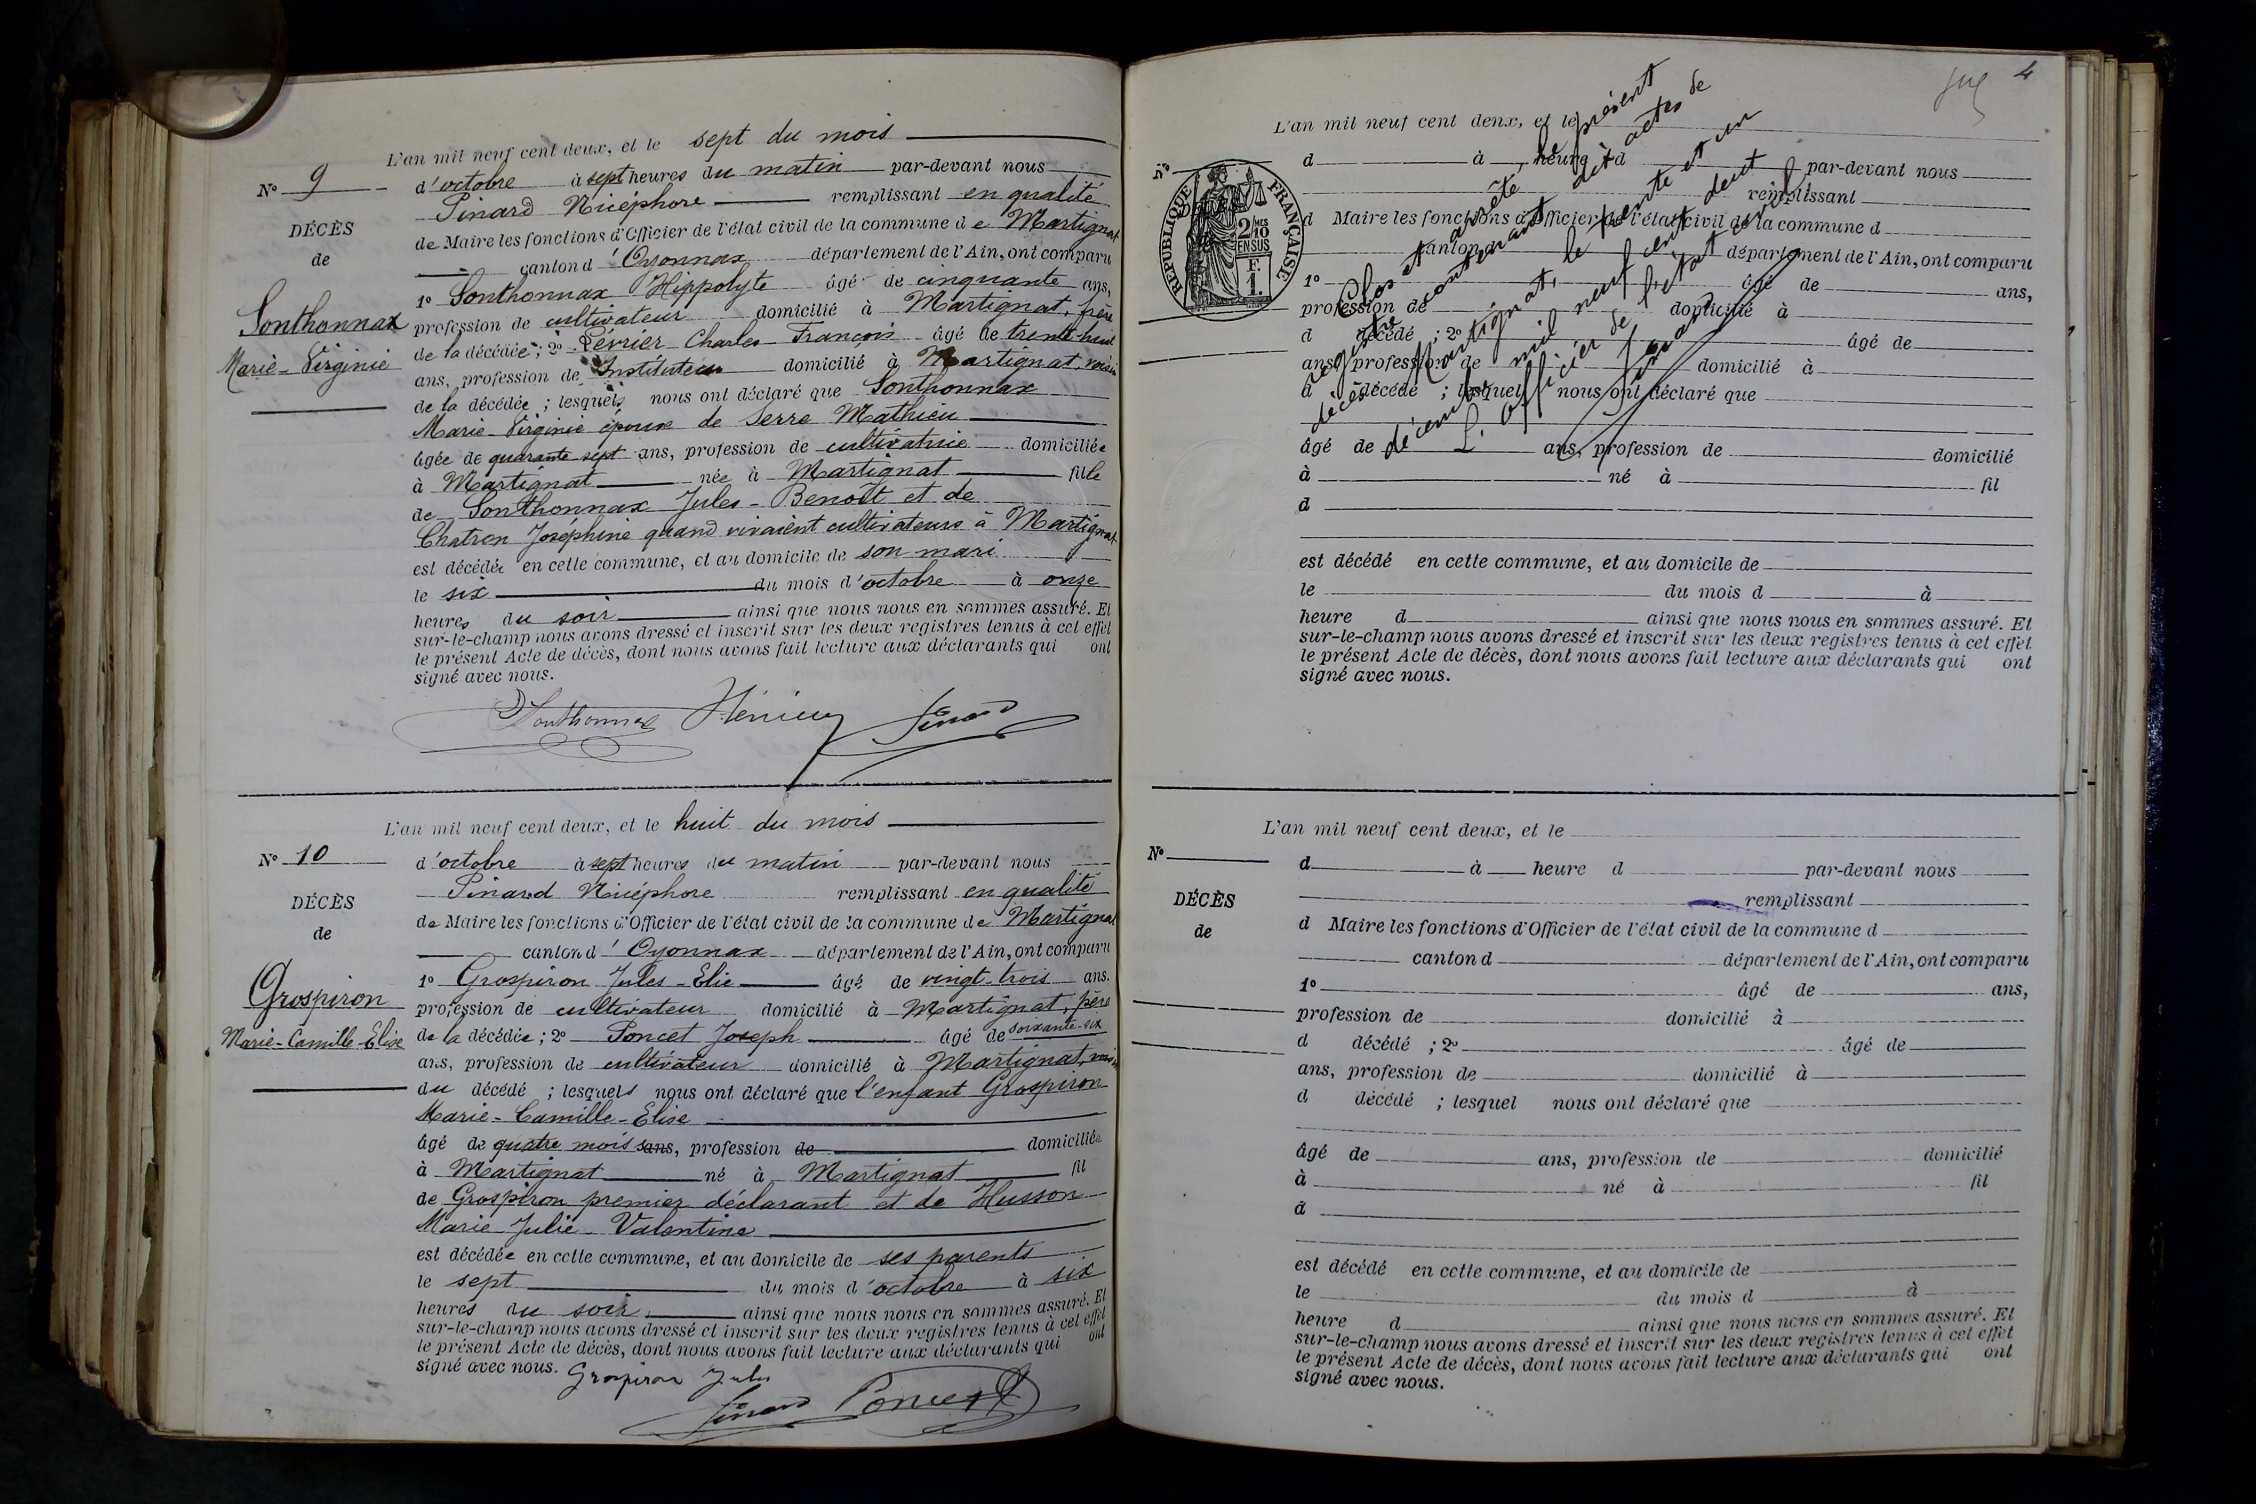 L'an mil neuf cent deux, et le sept du mois
N° 9
d'octobre à sept heures du matin par-devant nous
Pinard Nicéphore remplissant en qualité
DÉCÈS
de Maire les fonctions d'Officier de l'état civil de la commune de Martignat
de
canton d'Oyonnax département de l'Ain, ont comparu
1° Sonthonnax Hippolyte âgé de cinquante ans,
Sonthonnax
profession de cultivateur domicilié à Martignat, frère
Marie-Virginie
de la décédée ; 2° Charles François âgé de trente-huit
ans, profession de Instituteur domicilié à Martignat, voisin
de la décédée ; lesquels nous ont déclaré que Sonthonnax
Marie-Virginie épouse de Serre Mathieu
âgée de quarante sept ans, profession de cultivatrice domiciliée
à Martignat née à Martignat fille
de Sonthonnax Jules-Benoît et de
Chatron Joséphine quand vivaient cultivateurs à Martignat
est décédée en cette commune, et au domicile de son mari
le six du mois d'octobre à onze
heures du soir ainsi que nous nous en sommes assuré. Et
sur-le-champ nous avons dressé et inscrit sur les deux registres tenus à cet effet
le présent Acte de décès, dont nous avons fait lecture aux déclarants qui ont
signé avec nous.
Sonthonnax Pinard
L'an mil neuf cent deux, et le huit du mois
N° 10
d'octobre à sept heures du matin par-devant nous
Pinard Nicéphore remplissant en qualité
DÉCÈS
de Maire les fonctions d'Officier de l'état civil de la commune de Martignat
de
canton d'Oyonnax département de l'Ain, ont comparu
1° Grospiron Jules-Elie âgé de vingt-trois ans.
Grospiron
profession de cultivateur domicilié à Martignat, père
Marie-Camille-Elise
de la décédée ; 2° Poncet Joseph âgé de soixante-six
ans, profession de cultivateur domicilié à Martignat, voisin
du décédé ; lesquels nous ont déclaré que l'enfant Grospiron
Marie-Camille-Elise
âgé de quatre mois sans, profession de domiciliée
à Martignat né à Martignat fil
de Grospiron premier déclarant et de Husson
Marie Julie-Valentine
est décédée en cette commune, et au domicile de ses parents
le sept du mois d'octobre à six
heures du soir ainsi que nous nous en sommes assuré. Et
sur-le-champ nous avons dressé et inscrit sur les deux registres tenus à cet effet
le présent Acte de décès, dont nous avons fait lecture aux déclarants qui ont
signé avec nous. Grospiron Jules
Pinard Poncet
4
L'an mil neuf cent deux, et le
N°
d à heure d par-devant nous
remplissant
d Maire les fonctions d'Officier de l'état civil de la commune d
canton d département de l'Ain, ont comparu
1° âgé de ans,
profession de domicilié à
d décédé ; 2° âgé de
ans, profession de domicilié à
d décédé ; lesquel nous ont déclaré que
âgé de ans, profession de domicilié
à né à fil
d
est décédé en cette commune, et au domicile de
le du mois d à
heure d ainsi que nous nous en sommes assuré. Et
sur-le-champ nous avons dressé et inscrit sur les deux registres tenus à cet effet
le présent Acte de décès, dont nous avons fait lecture aux déclarants qui ont
signé avec nous.
RÉPUBLIQUE FRANÇAISE
2/10 MES
EN SUS
F.
1.
Clos et arrêté le présent
registre contenant dix actes de
décès à Martignat, le trente et un
décembre mil neuf cent deux
L'officier de l'état civil,
Pinard
L'an mil neuf cent deux, et le
N°
d à heure d par-devant nous
remplissant
DÉCÈS
d Maire les fonctions d'Officier de l'état civil de la commune d
de
canton d département de l'Ain, ont comparu
1° âgé de ans,
profession de domicilié à
d décédé ; 2° âgé de
ans, profession de domicilié à
d décédé ; lesquel nous ont déclaré que
âgé de ans, profession de domicilié
à né à fil
d
est décédé en cette commune, et au domicile de
le du mois d à
heure d ainsi que nous nous en sommes assuré. Et
sur-le-champ nous avons dressé et inscrit sur les deux registres tenus à cet effet
le présent Acte de décès, dont nous avons fait lecture aux déclarants qui ont
signé avec nous.